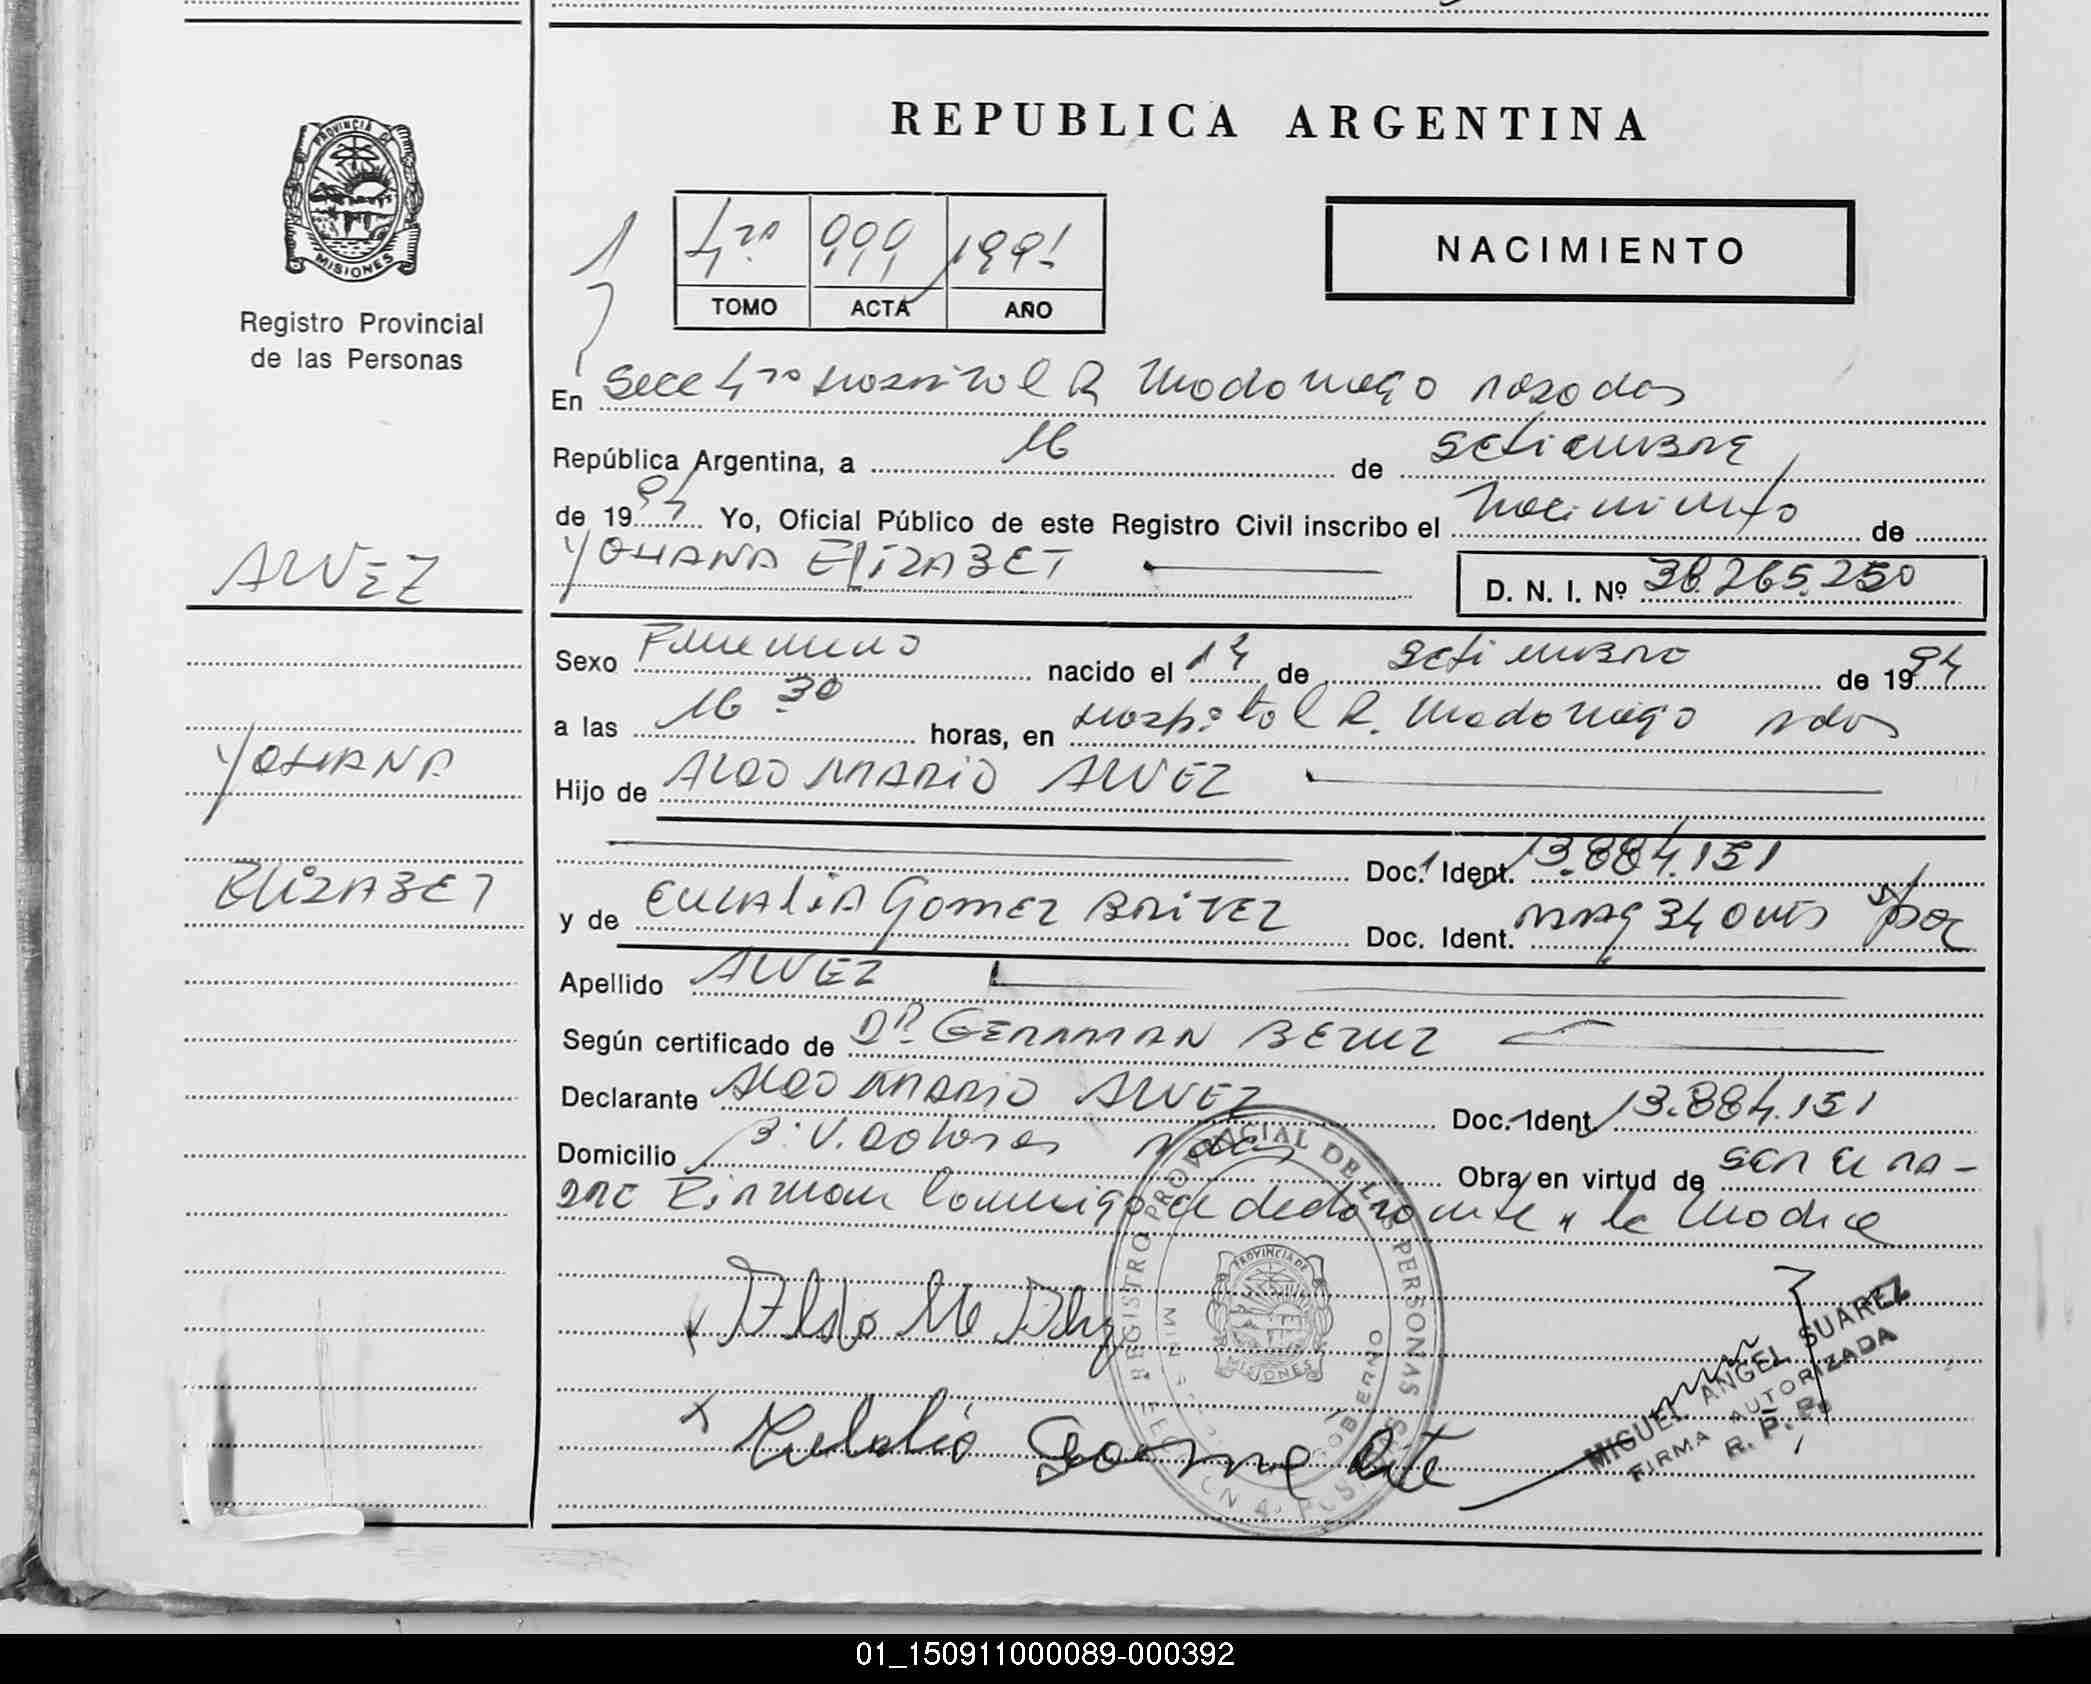 REPUBLICA ARGENTINA
PROVINCIA DE
MISIONES
Registro Provincial
de las Personas
4to 999
TOMO ACTA AÑO
NACIMIENTO
En Secc 4ta Hospital R Madariaga Posadas
República Argentina, a 16 de Setiembre
de 1994 Yo, Oficial Público de este Registro Civil inscribo el Nacimiento de
YOHANA ELIZABET
D. N. I. Nº 38.265.250
ALVEZ
YOHANA
ELIZABET
Sexo Femenino nacido el 14 de Setiembre de 1994
a las 16 30 horas, en Hospital R. Madariaga Pdas
Hijo de ALDO MARIO ALVEZ
Doc. Ident. 13.884.151
y de EULALIA GOMEZ BRITEZ Doc. Ident. 34
Apellido ALVEZ
Según certificado de Dr. GERMAN
Declarante ALDO MARIO ALVEZ Doc. Ident. 13.884.151
Domicilio B: V. Dolores Pdas Obra en virtud de ser el pa-
dre Firman conmigo el declarante y la madre
REGISTRO PROVINCIAL DE LAS PERSONAS
PROVINCIA DE
MISIONES
GOBIERNO
SECCION 4ª POSADAS
Aldo M Alvez
Eulalia Gome Brite
MIGUEL ANGEL SUAREZ
FIRMA AUTORIZADA
R. P. P.
01_150911000089-000392